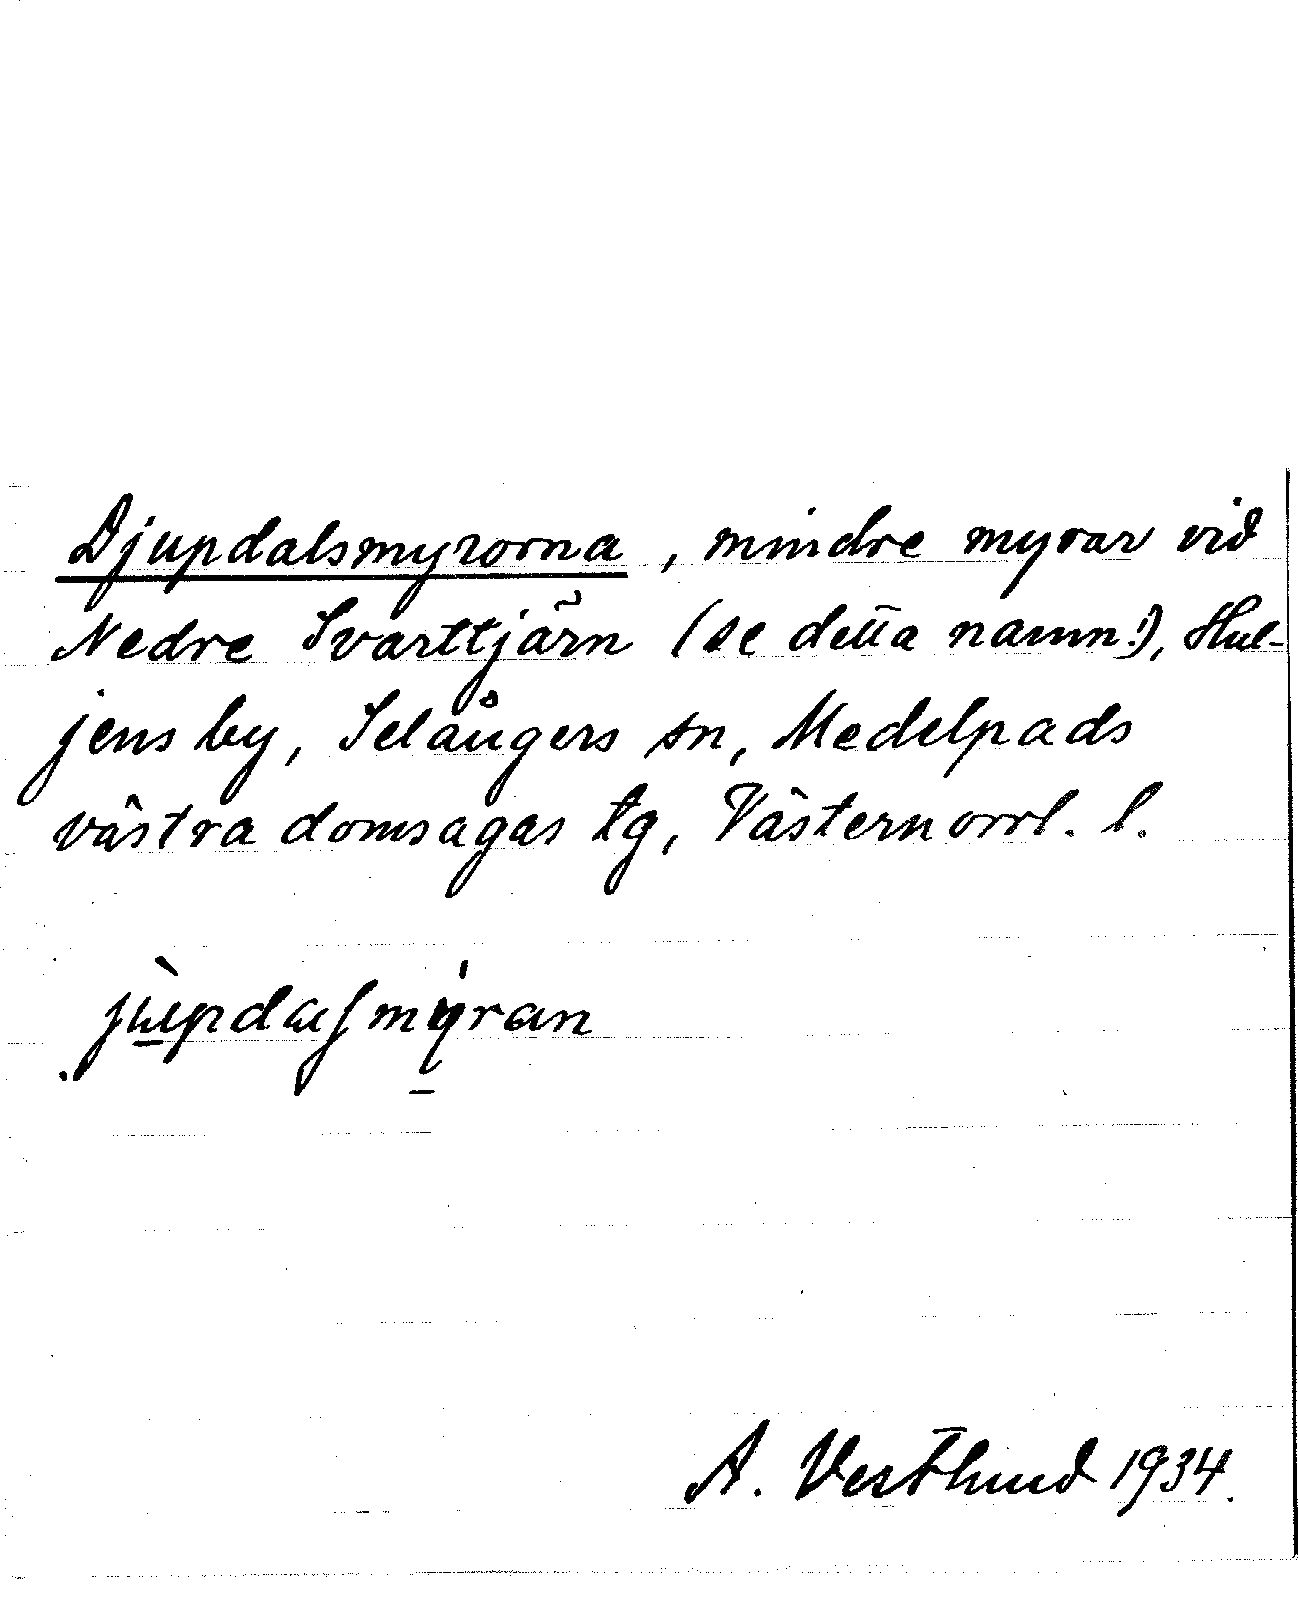 Djupdalsmyrorna, mindre myrar vid
Nedre Svarttjärn (se detta namn!), Hul-
jens by, Selångers sn, Medelpads
västra domsagas tg, Västernorrl. l.
A. Vestlund 1934.